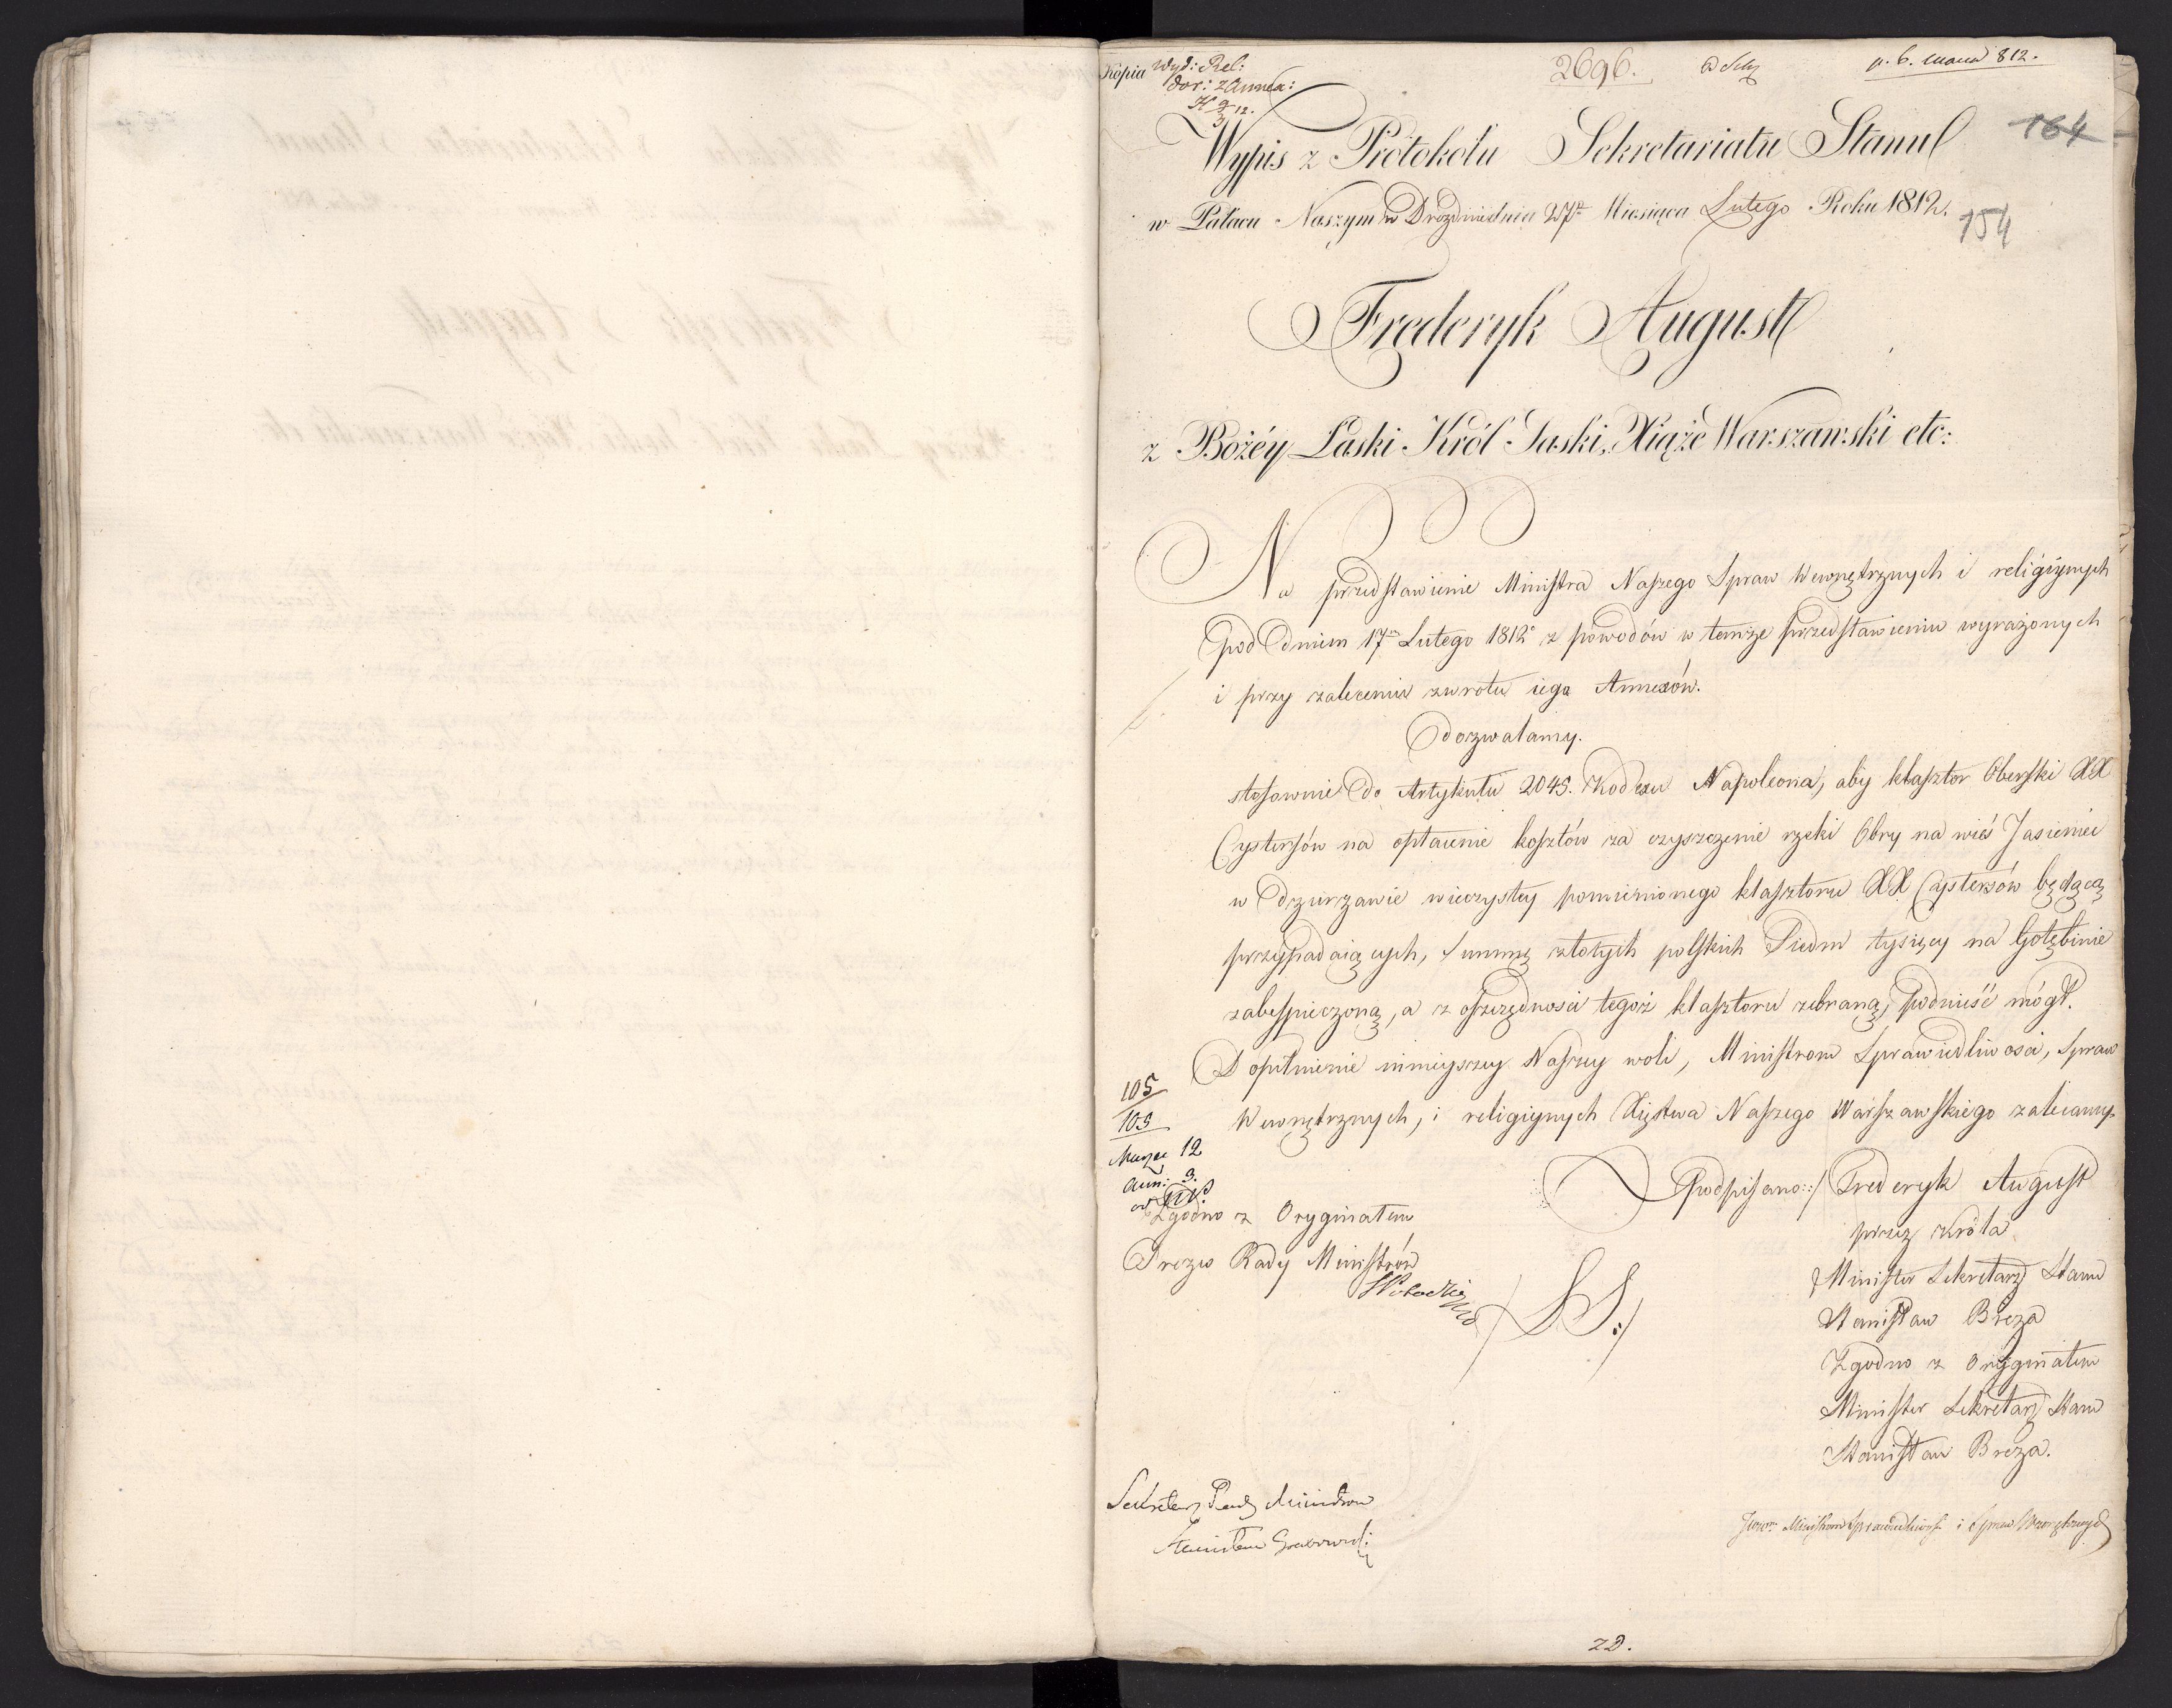 Kopia
Wyd: Rel:
2696.
p. 6. Marca 812.
164
Wypis z Protokołu Sekretariatu Stanu
w Pałacu Naszym w Dreznie dnia 27º Miesiąca Lutego Roku 1812.
154
Fryderyk August
z Bożéy Łaski Król Saski, Xiąże Warszawski etc:
Na przedstawienie Ministra Naszego Spraw Wewnętrznych i religiynych
pod dniem 17m Lutego 1812º z powodów w temże przedstawieniu wyrażonych
i przy zaleceniu zwrotu iego Annexów.
dozwalamy.
stosownie do Artykułu 2045. Kodexu Napoleona, aby klasztor Oberski XX
Cystersów na opłacenie kosztów za czyszczenie rzeki Obry na wieś Jasieniec
w dzierżawie wieczystey pomienionego klasztoru XX Cystersów będącą
przypadaiących, Summę złotych polskich Siedm tysięcy na Gołębinie
zabespieczoną, a z oszczędności tegoż klasztoru zebraną, podnieść mógł.
Dopełnienie ninieyszey Naszey woli, Ministrom Sprawiedliwości, Spraw
Wewnętrznych, i religiynych Xięstwa Naszego Warszawskiego zalecamy.
105
103
Marzec 12
Ann: 3.
Podpisano:/ Frederyk August
przez Króla
Minister Sekretarz Stanu
Stanisław Breza
Zgodno z Oryginałem
Minister Sekretarz Stanu
Stanisław Breza.
Zgodno z Oryginałem
Prezes Rady Ministrów
/LS:/
Sekretarz Rady Ministrow
Stanisław Grabowski
Ministrom Sprawiedliwości i Spraw Wewnętrznych